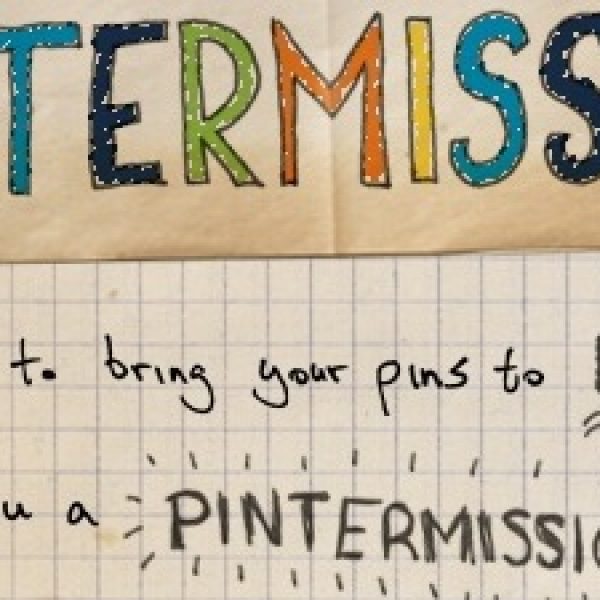 TERMISS
to bring your pins to
u a PINTERMISSIO